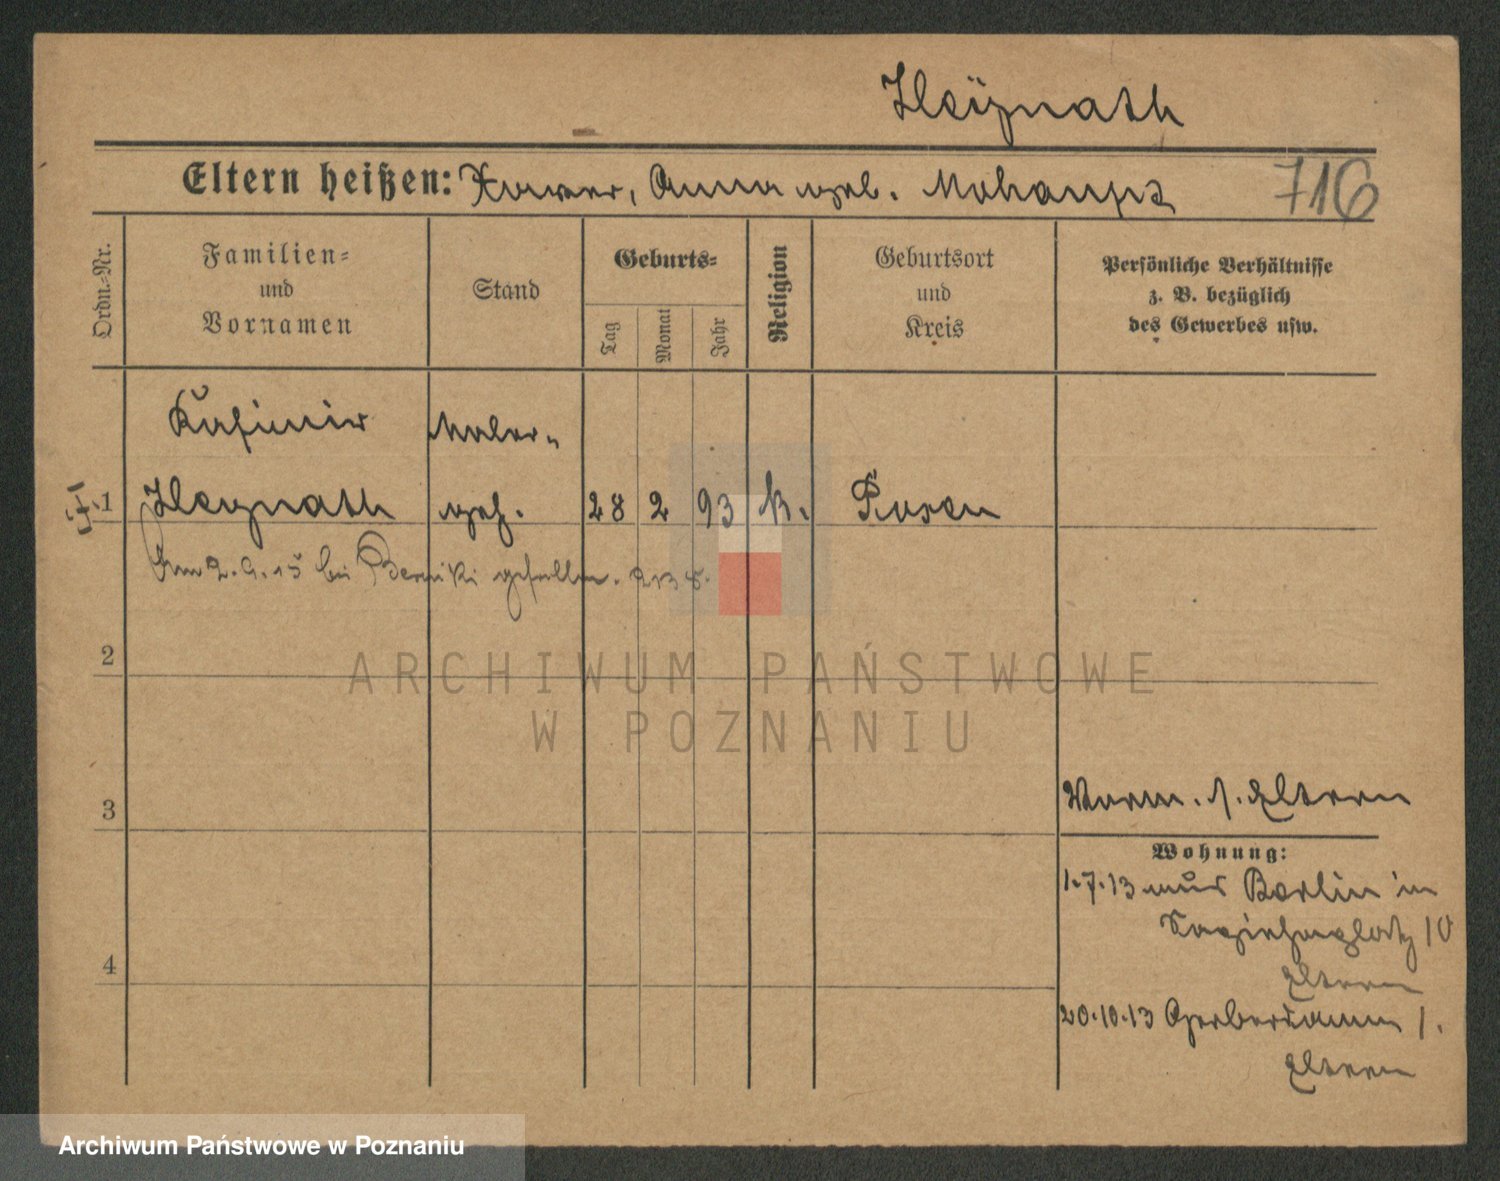 Heÿnath
Eltern heißen: Xaver, Anna geb. Mohaupt
716
Ordn.-Nr.
Familien-
und
Vornamen
Stand
Geburts-
Tag
Monat
Jahr
Religion
Geburtsort
und
Kreis
Persönliche Verhältnisse
z. B. bezüglich
des Gewerbes usw.
Kasimir Maler-
1 Heynath geh. 28 2 93 k. Posen
Am 2.9.15 bei gefallen.
2
ARCHIWUM PAŃSTWOWE
W POZNANIU
3
Eltern
Wohnung:
1.7.13 aus Berlin in
10
Eltern
4
20.10.13 Gerberdamm 1.
Eltern
Archiwum Państwowe w Poznaniu